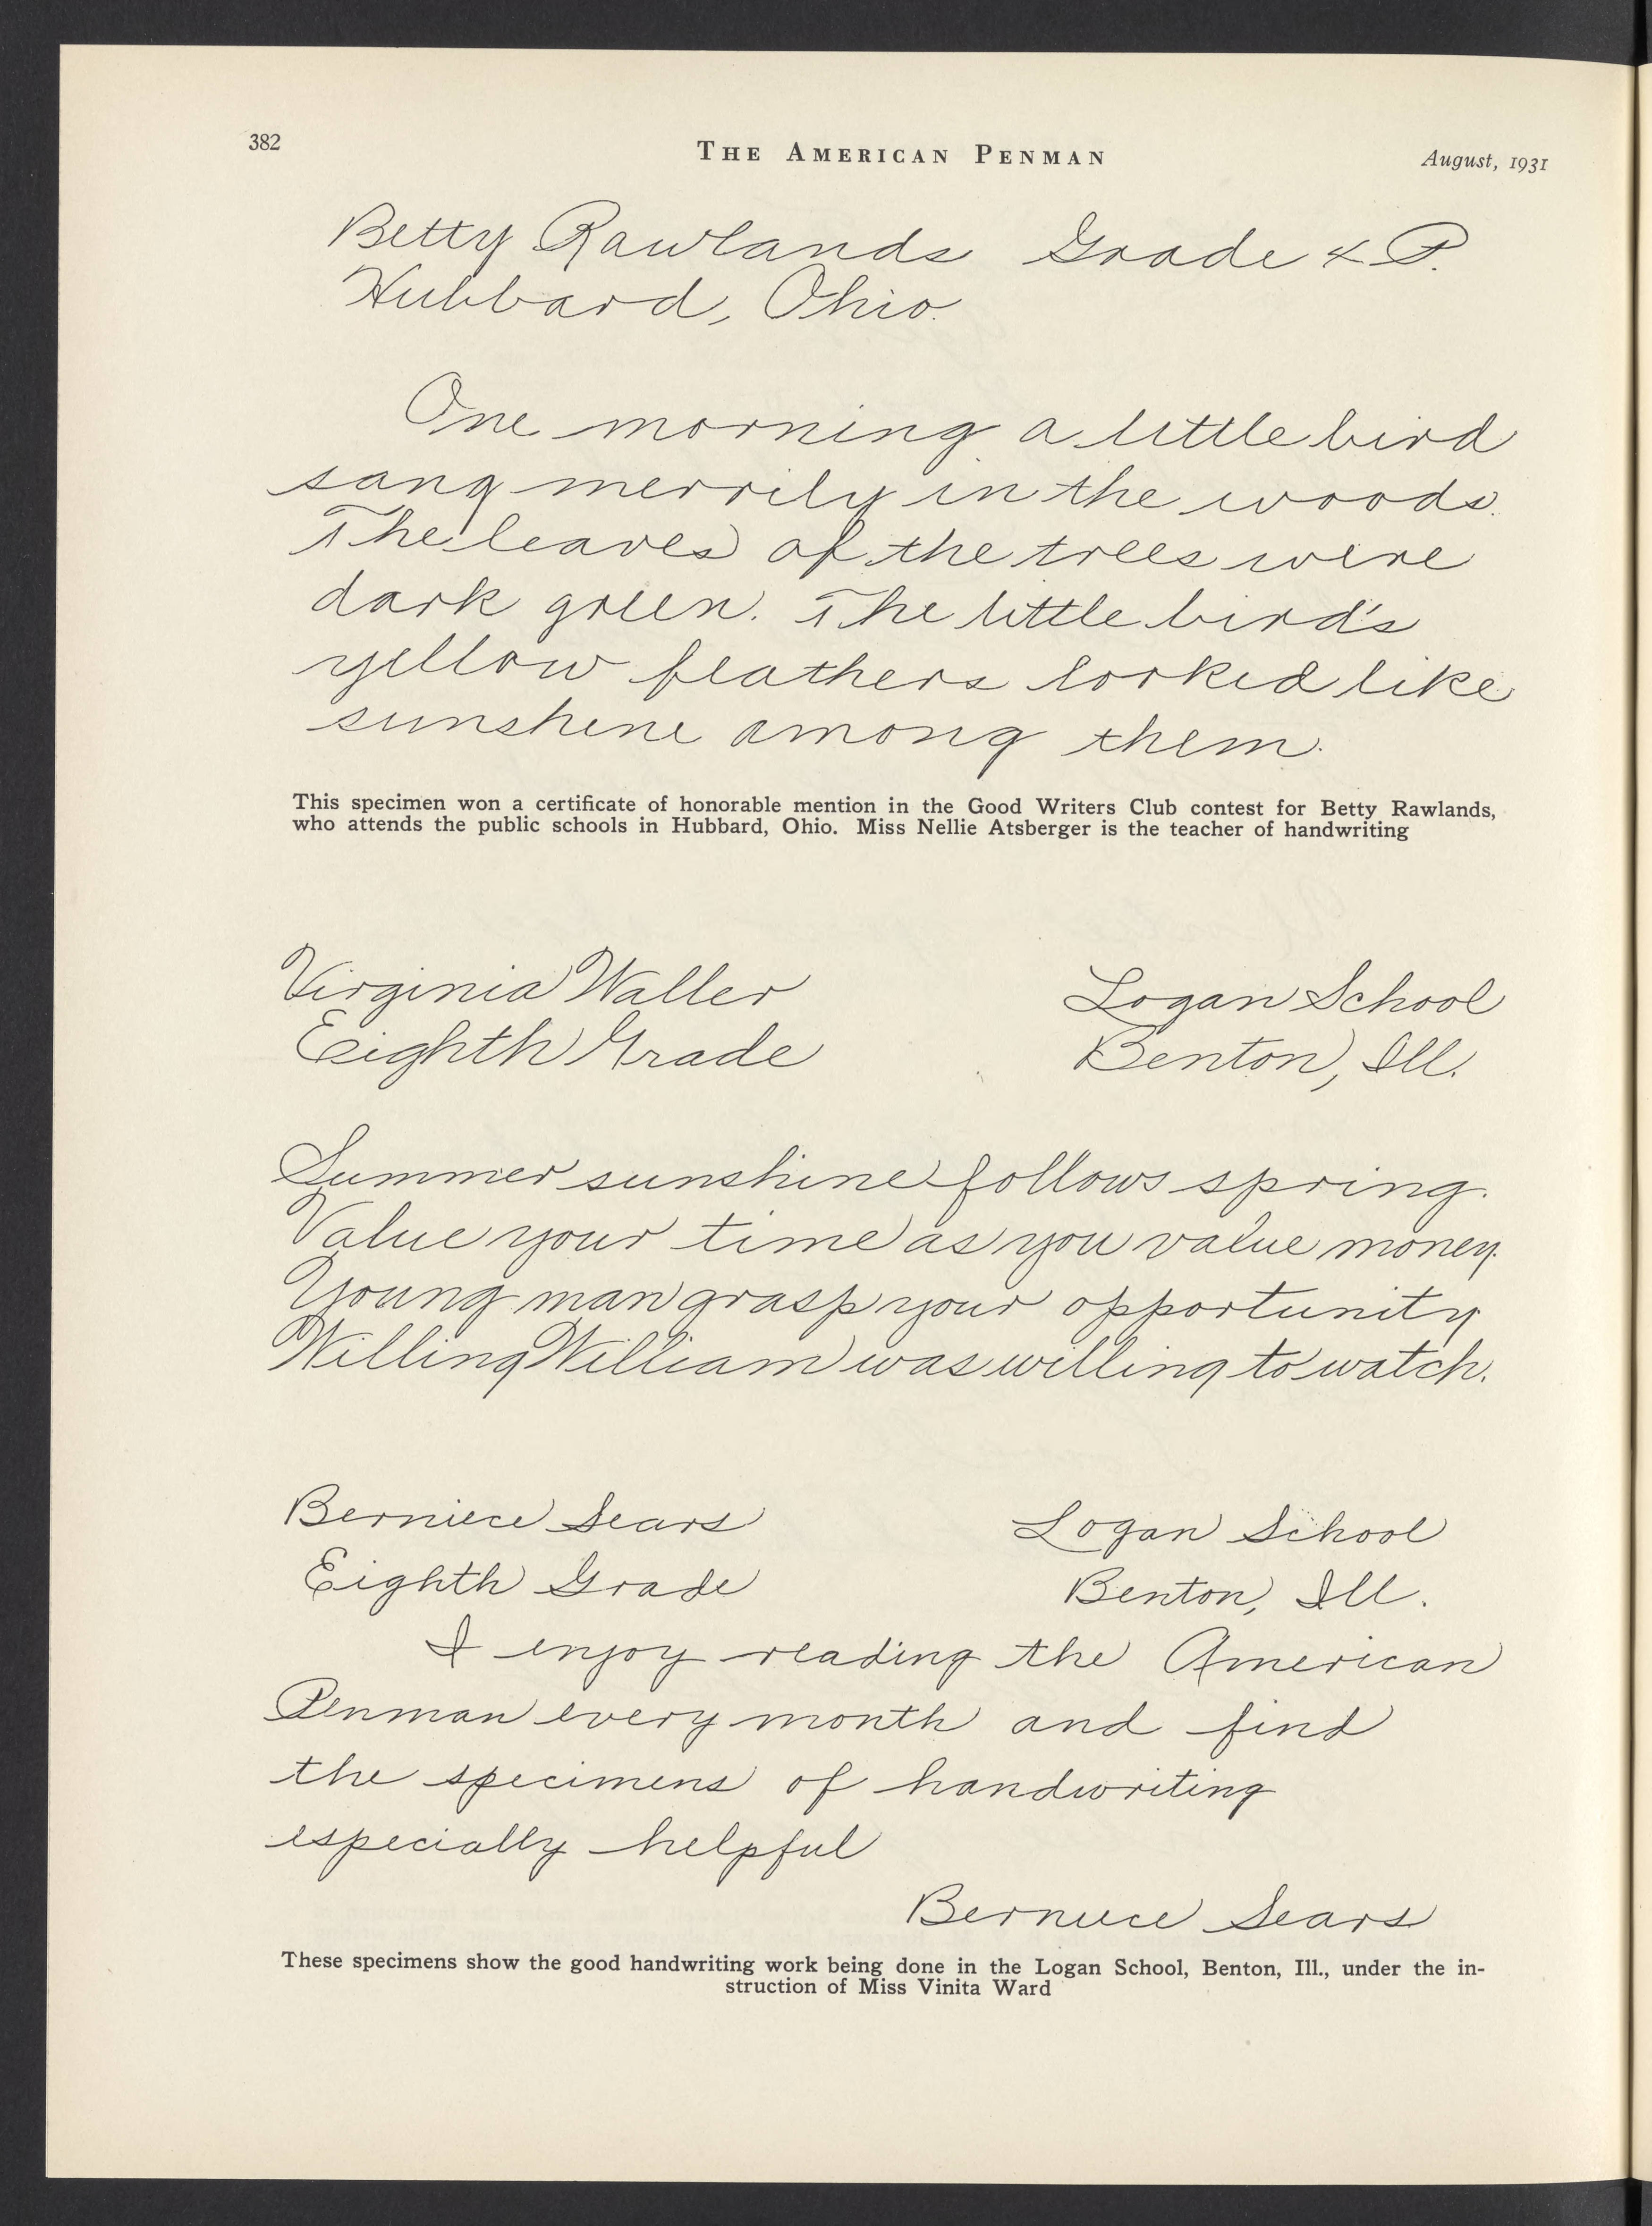 382
THE AMERICAN PENMAN
August, 1931
Betty Rawlands Grade 4 P.
Hubbard, Ohio.
One morning a little bird
sang merrily in the woods.
The leaves of the trees were
dark green. The little bird's
yellow feathers looked like
sunshine among them.
This specimen won a certificate of honorable mention in the Good Writers Club contest for Betty Rawlands,
who attends the public schools in Hubbard, Ohio. Miss Nellie Atsberger is the teacher of handwriting
Virginia Waller Logan School
Eighth Grade Benton, Ill.
Summer sunshine follows spring.
Value your time as you value money.
Young man grasp your opportunity.
Willing William was willing to watch.
Berniece Sears Logan School
Eighth Grade Benton, Ill.
I enjoy reading the American
Penman every month and find
the specimens of handwriting
especially helpful
Berniece Sears
These specimens show the good handwriting work being done in the Logan School, Benton, Ill., under the in-
struction of Miss Vinita Ward